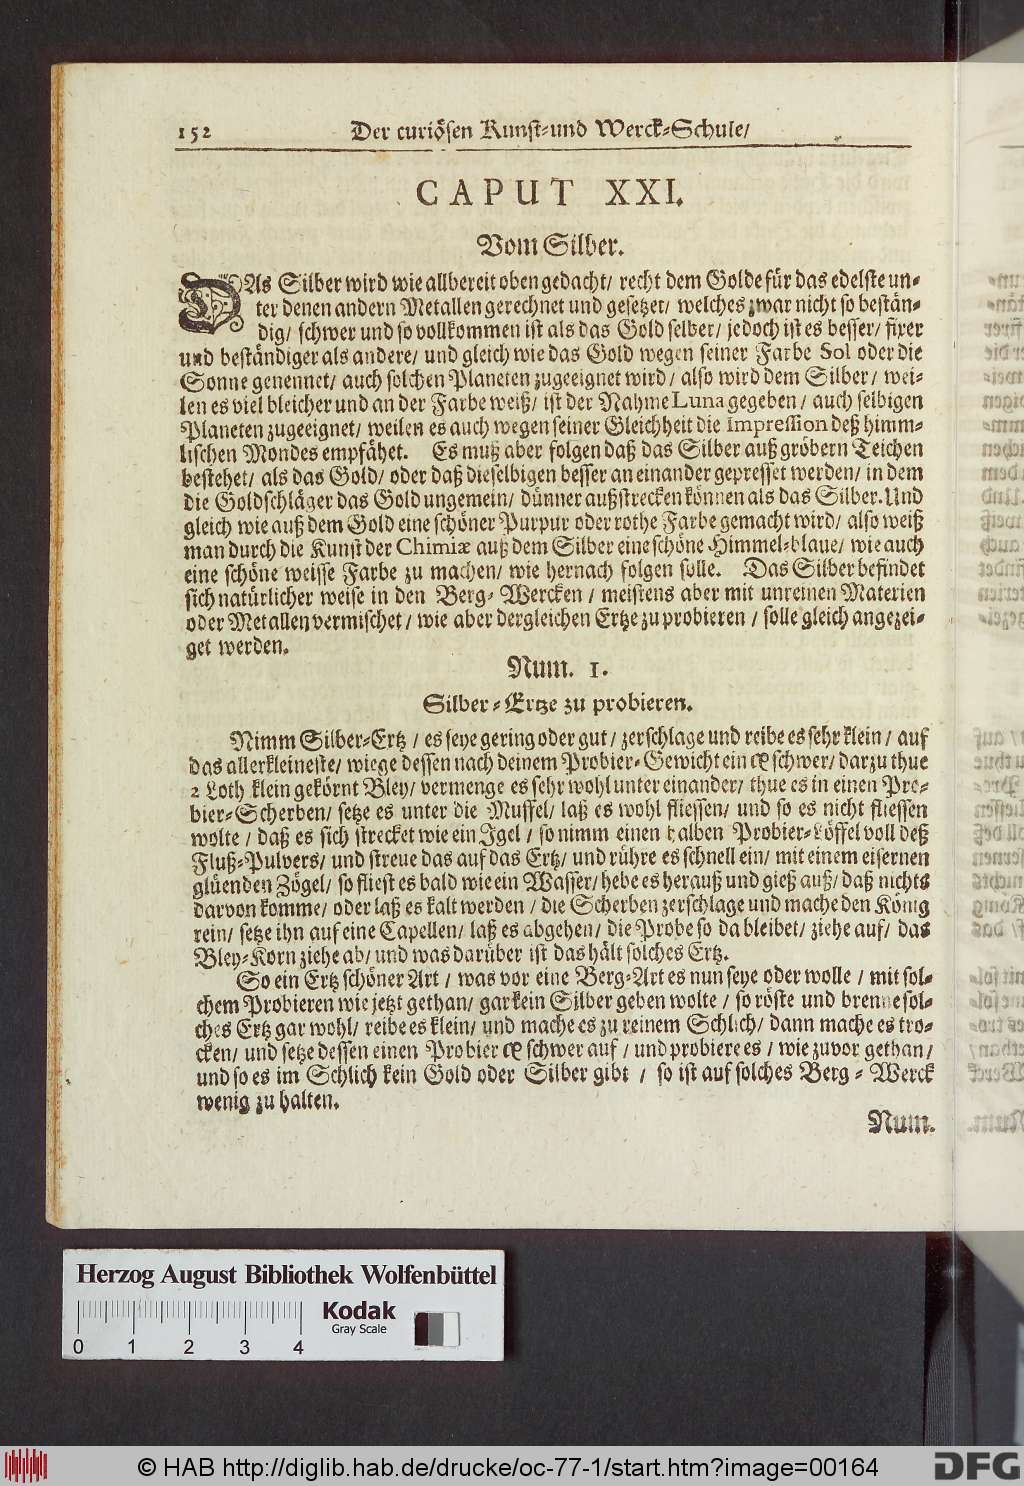 152 Der curiösen Kunst-und Werck-Schule/
CAPUT XXI.
Vom Silber.
DAs Silber wird wie allbereit oben gedacht/ recht dem Golde für das edelste un-
ter denen andern Metallen gerechnet und gesetzet/ welches zwar nicht so bestän-
dig/ schwer und so vollkommen ist als das Gold selber/ jedoch ist es besser/ fixer
und beständiger als andere/ und gleich wie das Gold wegen seiner Farbe Sol oder die
Sonne genennet/ auch solchen Planeten zugeeignet wird/ also wird dem Silber/ wei-
len es viel bleicher und an der Farbe weiß/ ist der Nahme Luna gegeben/ auch selbigen
Planeten zugeeignet/ weilen es auch wegen seiner Gleichheit die Impression deß himm-
lischen Mondes empfähet. Es muß aber folgen daß das Silber auß gröbern Teichen
bestehet/ als das Gold/ oder daß dieselbigen besser an einander gepresset werden/ in dem
die Goldschläger das Gold ungemein/ dünner außstrecken können als das Silber. Und
gleich wie auß dem Gold eine schöner Purpur oder rothe Farbe gemacht wird/ also weiß
man durch die Kunst der Chimiæ auß dem Silber eine schöne Himmel-blaue/ wie auch
eine schöne weisse Farbe zu machen/ wie hernach folgen solle. Das Silber befindet
sich natürlicher weise in den Berg-Wercken/ meistens aber mit unreinen Materien
oder Metallen vermischet/ wie aber dergleichen Ertze zu probieren/ solle gleich angezei-
get werden.
Num. 1.
Silber-Ertze zu probieren.
Nimm Silber-Ertz/ es seye gering oder gut/ zerschlage und reibe es sehr klein/ auf
das allerkleineste/ wiege dessen nach deinem Probier-Gewicht ein ℔ schwer/ darzu thue
2 Loth klein gekörnt Bley/ vermenge es sehr wohl unter einander/ thue es in einen Pro-
bier-Scherben/ setze es unter die Muffel/ laß es wohl fliessen/ und so es nicht fliessen
wolte/ daß es sich strecket wie ein Igel/ so nimm einen halben Probier-Löffel voll deß
Fluß-Pulvers/ und streue das auf das Ertz/ und rühre es schnell ein/ mit einem eisernen
glüenden Zögel/ so fliest es bald wie ein Wasser/ hebe es herauß und gieß auß/ daß nichts
darvon komme/ oder laß es kalt werden/ die Scherben zerschlage und mache den König
rein/ setze ihn auf eine Capellen/ laß es abgehen/ die Probe so da bleibet/ ziehe auf/ das
Bley-Korn ziehe ab/ und was darüber ist das hält solches Ertz.
So ein Ertz schöner Art/ was vor eine Berg-Art es nun seye oder wolle/ mit sol-
chem Probieren wie jetzt gethan/ gar kein Silber geben wolte/ so röste und brenne sol-
ches Ertz gar wohl/ reibe es klein/ und mache es zu reinem Schlich/ dann mache es tro-
cken/ und setze dessen einen Probier ℔ schwer auf/ und probiere es/ wie zuvor gethan/
und so es im Schlich kein Gold oder Silber gibt/ so ist auf solches Berg-Werck
wenig zu halten.
Num.
Herzog August Bibliothek Wolfenbüttel
Kodak
Gray Scale
0 1 2 3 4
© HAB http://diglib.hab.de/drucke/oc-77-1/start.htm?image=00164
DFG